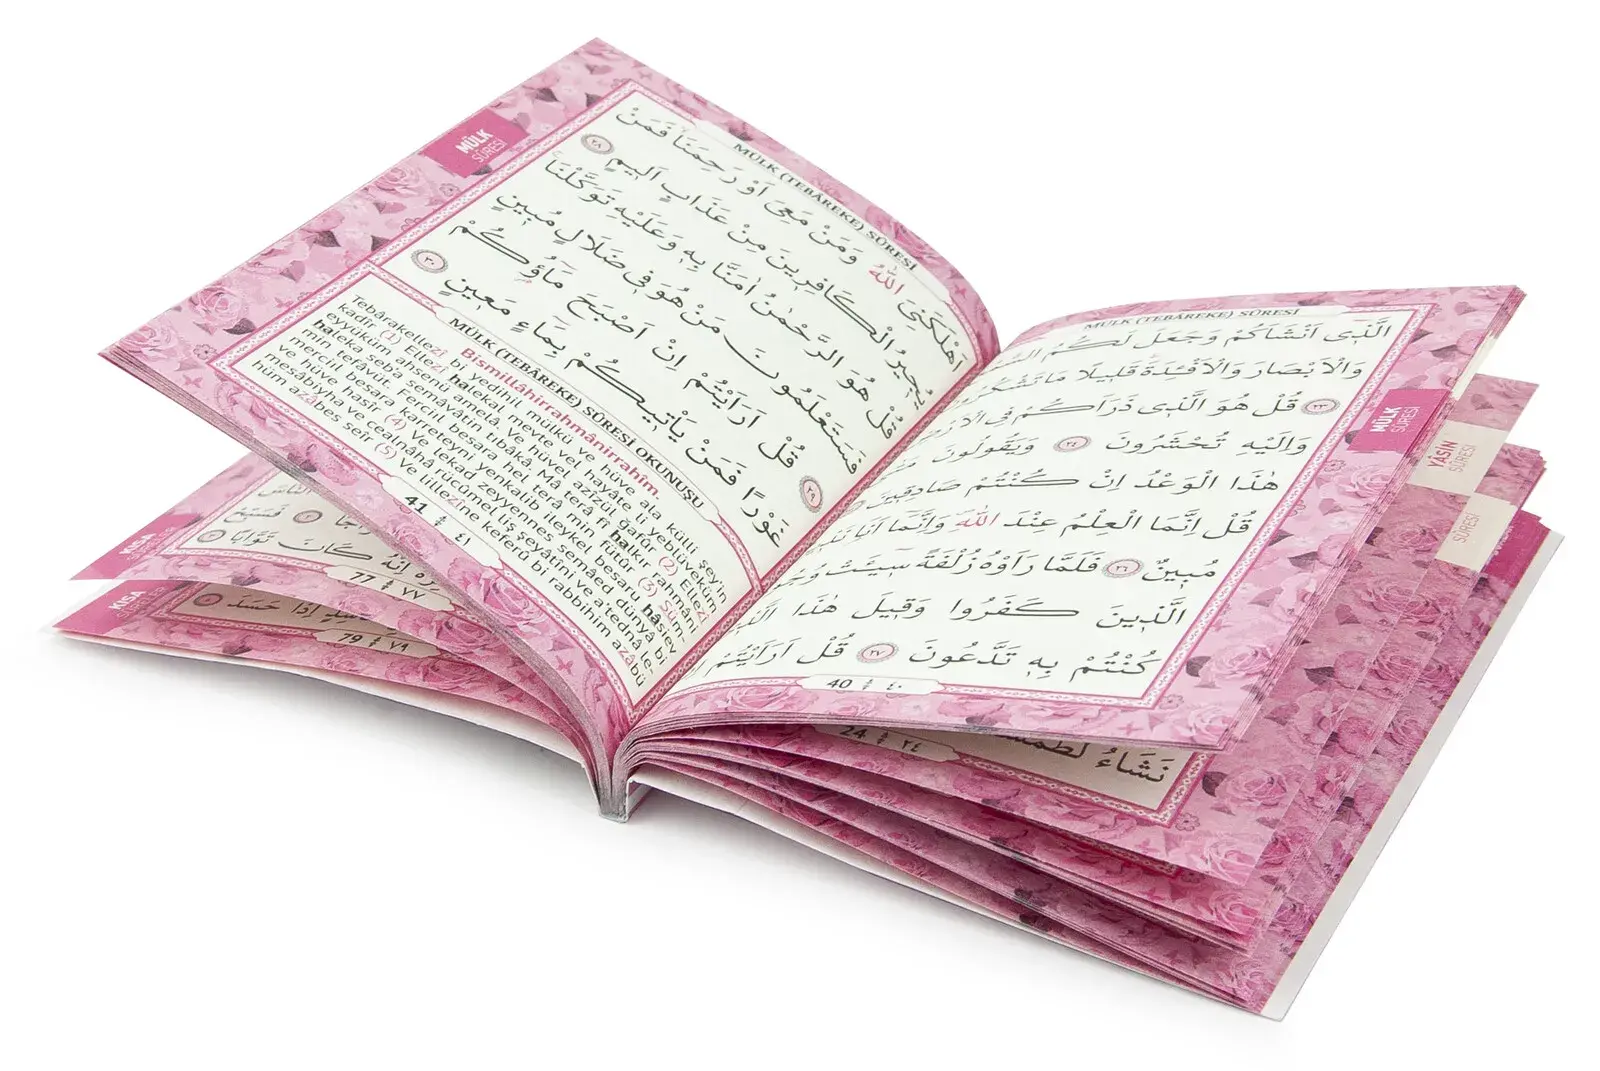 MÜLK (TEBÂREKE) SÛRESİ
الَّذ۪ٓي اَنْشَاَكُمْ وَجَعَلَ لَكُمُ
وَالْاَبْصَارَ وَالْاَفْـِٔدَةَ قَل۪يلًا مَا
٢٣ قُلْ هُوَ الَّذ۪ي ذَرَاَكُمْ فِي
وَاِلَيْهِ تُحْشَرُونَ ٢٤ وَيَقُولُونَ
هٰذَا الْوَعْدُ اِنْ كُنْتُمْ صَادِق۪ينَ
قُلْ اِنَّمَا الْعِلْمُ عِنْدَ اللّٰهِ وَاِنَّمَا اَنَا
مُب۪ينٌ ٢٦ فَلَمَّا رَاَوْهُ زُلْفَةً س۪ٓيـَٔتْ
الَّذ۪ينَ كَفَرُوا وَق۪يلَ هٰذَا
كُنْتُمْ بِه۪ تَدَّعُونَ ٢٧ قُلْ اَرَاَيْتُمْ
40 ٤٠
MÜLK
SÛRESİ
MÜLK
SÛRESİ
MÜLK (TEBÂREKE) SÛRESİ
اَهْلَكَنِيَ اللّٰهُ وَمَنْ مَعِيَ اَوْ رَحِمَنَا فَمَنْ
يُج۪يرُ الْكَافِر۪ينَ مِنْ عَذَابٍ اَل۪يمٍ ٢٨
قُلْ هُوَ الرَّحْمٰنُ اٰمَنَّا بِه۪ وَعَلَيْهِ تَوَكَّلْنَا
فَسَتَعْلَمُونَ مَنْ هُوَ ف۪ي ضَلَالٍ مُب۪ينٍ
٢٩ قُلْ اَرَاَيْتُمْ اِنْ اَصْبَحَ مَٓاؤُ۬كُمْ
غَوْرًا فَمَنْ يَأْت۪يكُمْ بِمَٓاءٍ مَع۪ينٍ ٣٠
MÜLK (TEBÂREKE) SÛRESİ OKUNUŞU
Bismillâhirrahmânirrahîm.
Tebârakellezî bi yedihil mülkü ve hüve ala külli şey'in
kadîr (1) Ellezî halekal mevte vel hayâte li yeblüveküm
eyyüküm ahsenü amelâ. Ve hüvel azîzül ğafûr (2) Ellezî
haleka seb'a semâvâtin tibâkâ. Mâ terâ fî halkir rahmâni
min tefâvüt. Ferciıl besara hel terâ min fütûr (3) Süm-
mercil besara karreteyni yenkalib ileykel besaru hâsiev
ve hüve hasîr (4) Ve lekad zeyyennes semâed dünyâ bi
mesâbîyha ve cealnâhâ rücûmel liş şeyâtîni ve a'tednâ le-
hüm azâbes seîr (5) Ve lillezîne keferû bi rabbihim azâbü
41 ٤١
YÂSİN
SÛRESİ
SÛRESİ
نَشَٓاءُ
24 ٢٤
KISA
كَانَ تَوَّابًا
77 ٧٧
KISA
اِذَا حَسَدَ
79 ٧٩